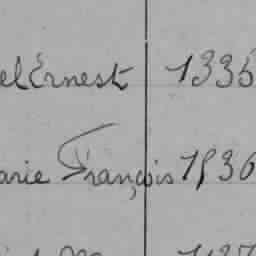 el Ernest 1335
arie François 1936